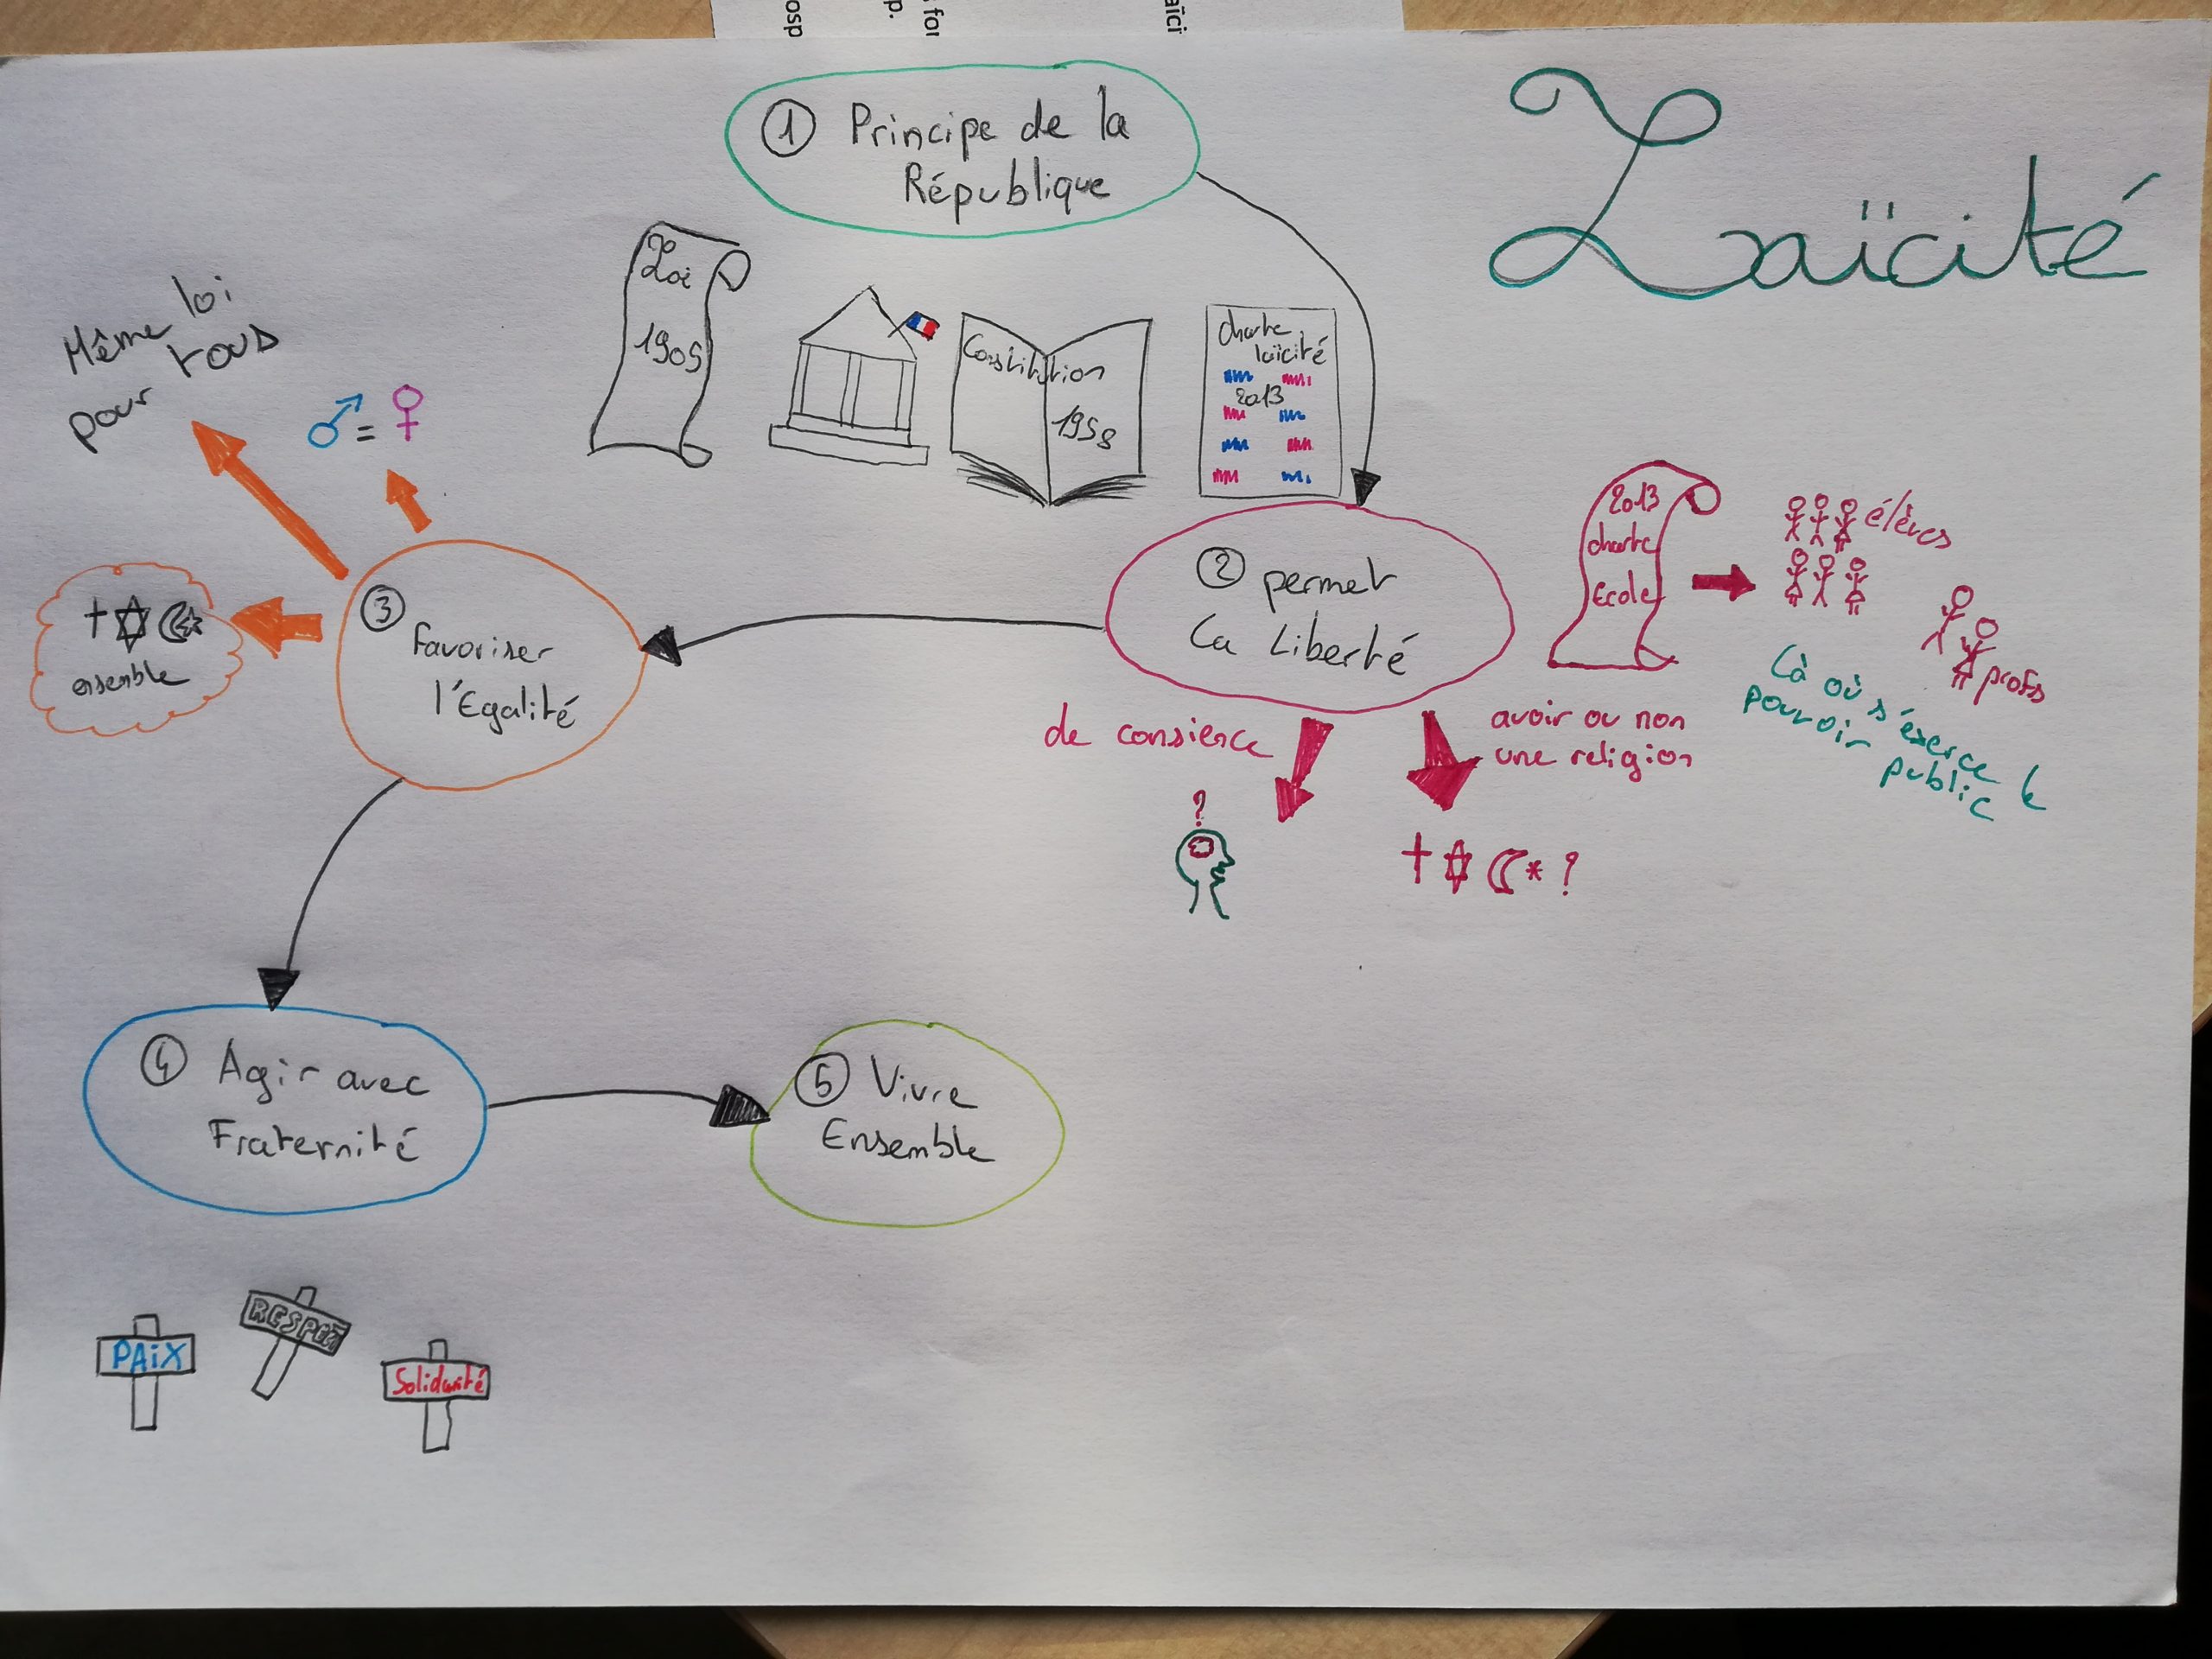 osp
p.
s for
aïci
Laïcité
① Principe de la
République
Loi
1905
Constitution
1958
charte
laïcité
2013
② permet
la Liberté
2013
charte
Ecole
élèves
profs
là où s'éxerce le
pouvoir public
de consience
avoir ou non
une religion
?
?
③ Favoriser
l'Egalité
Même loi
pour tous
=
ensemble
④ Agir avec
Fraternité
PAiX
RESPECT
Solidarité
⑤ Vivre
Ensemble